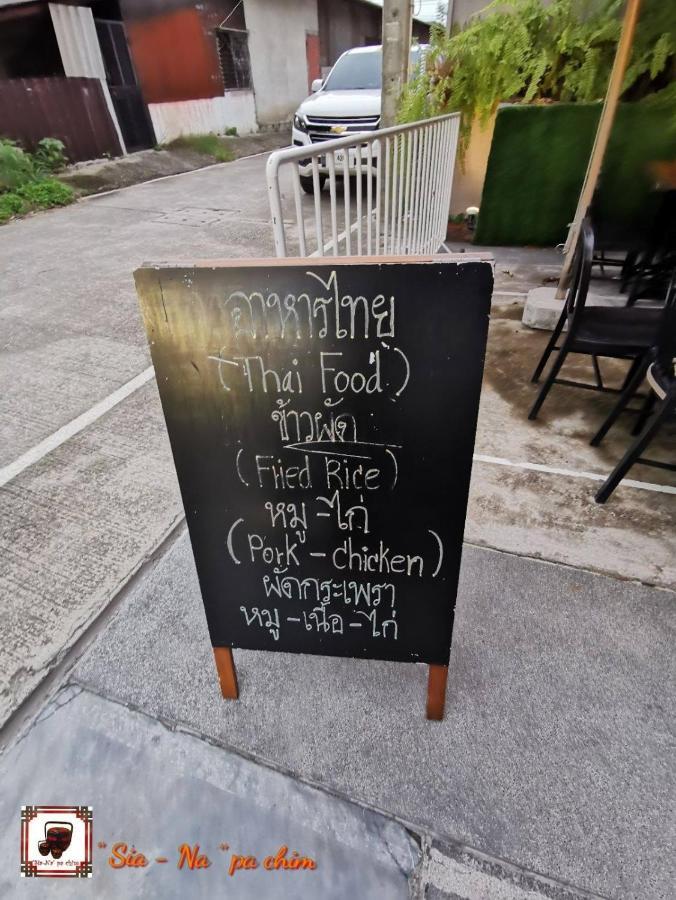 อาหารไทย
(Thai Food)
ข้าวผัด
(Fried Rice)
หมู - ไก่
(Pork - chicken)
ผัดกระเพรา
หมู - เนื้อ - ไก่
"Sia - Na "pa chim